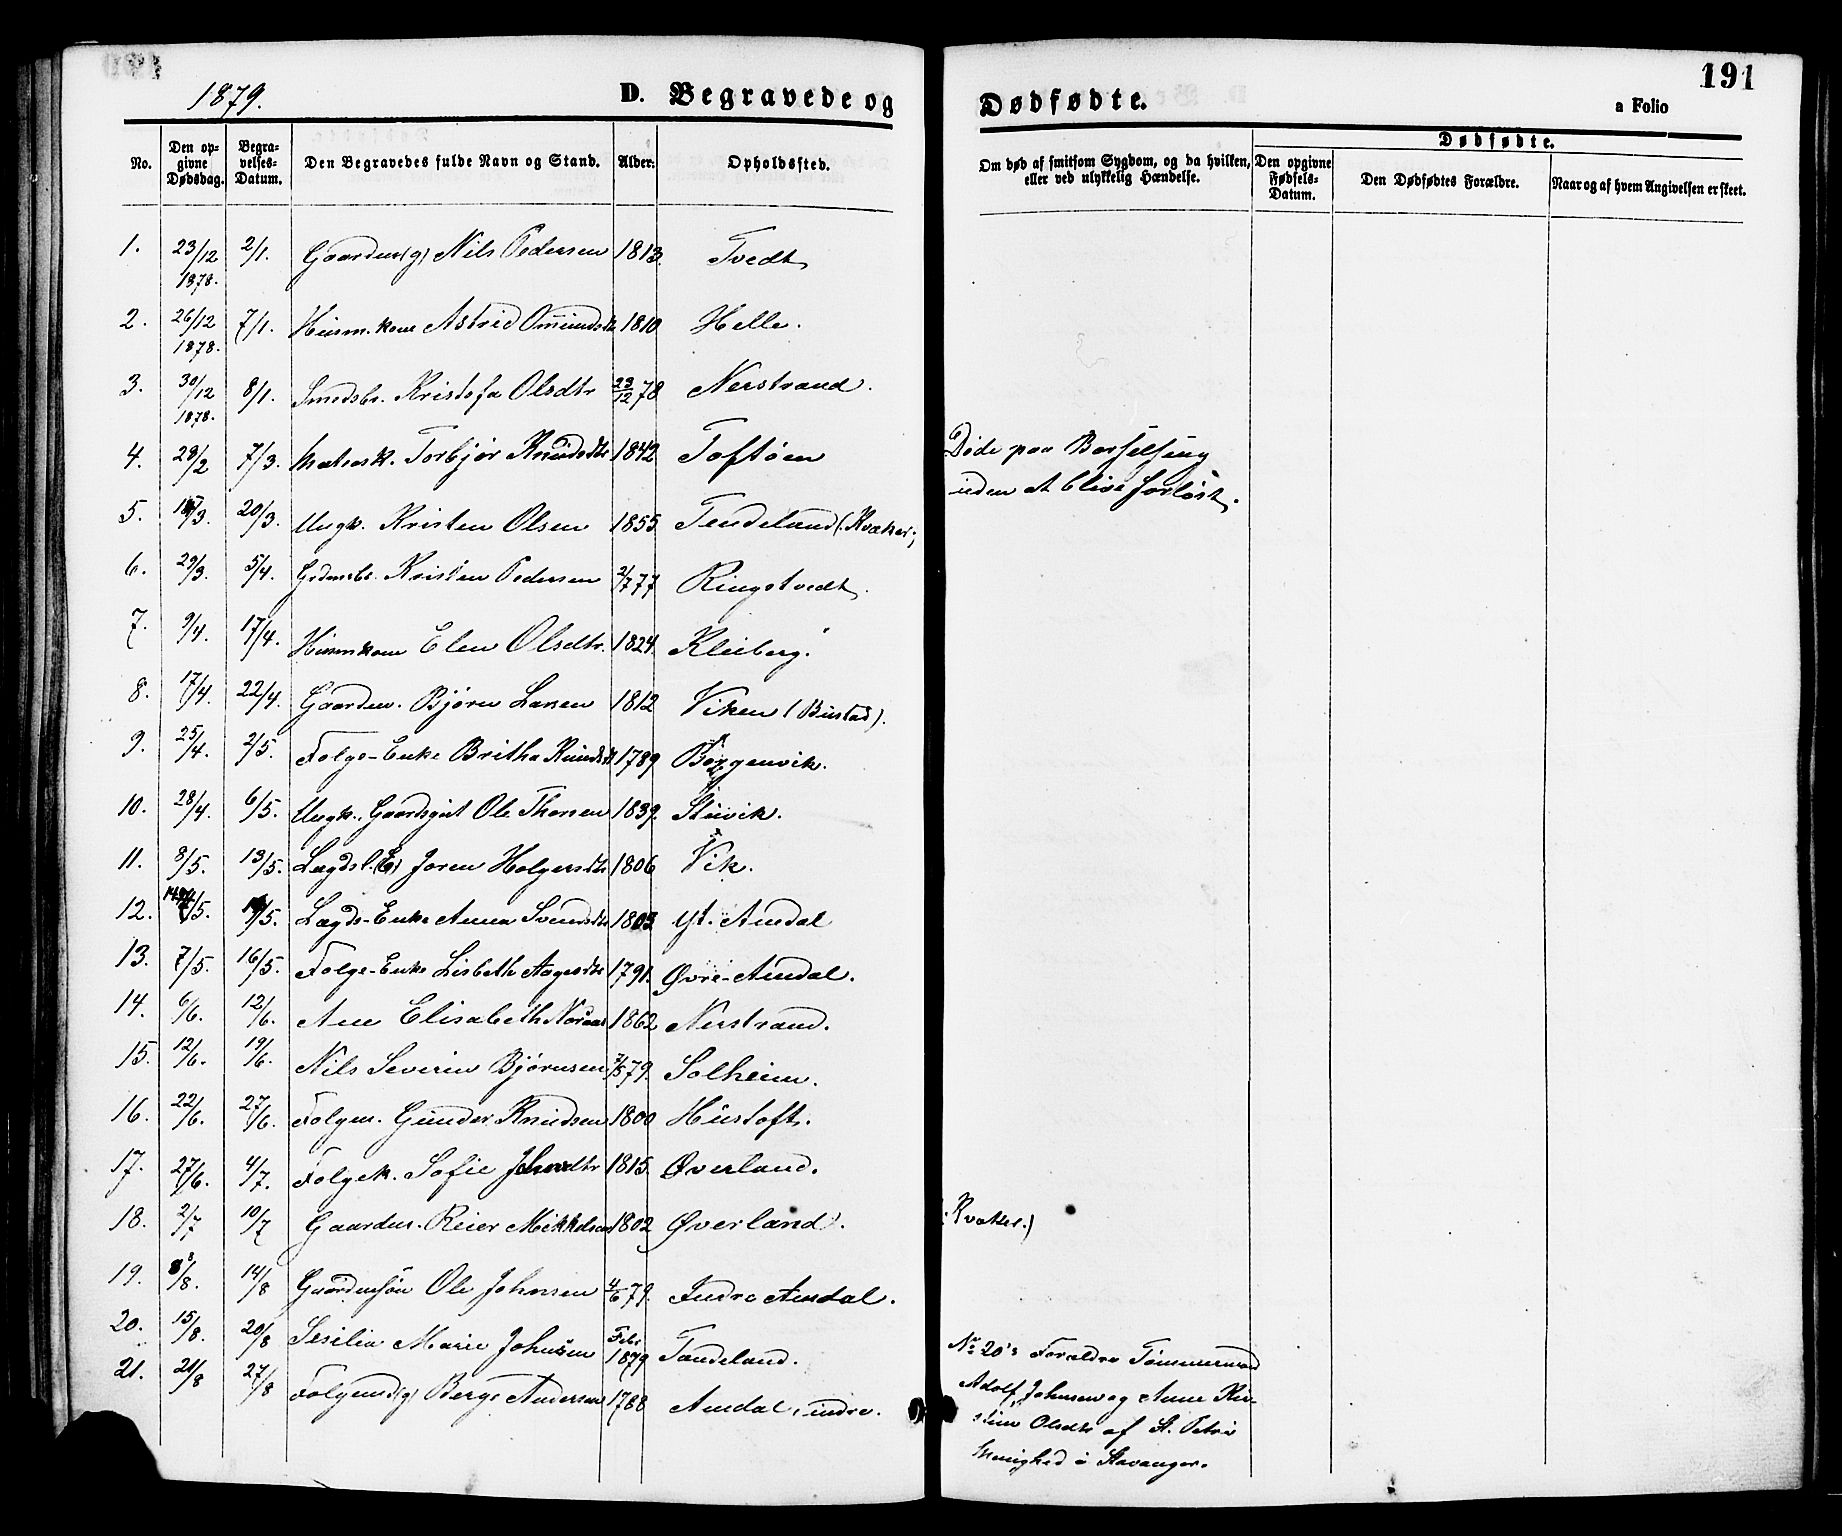 191
1879.
D. Begravede og Dødfødte.
a Folio
No.
Den op-
givne
Dødsdag.
Begra-
velses-
Datum.
Den Begravedes fulde Navn og Stand.
Alder.
Opholdssted.
Om død af smitsom Sygdom, og da hvilken,
eller ved ulykkelig Hændelse.
Dødfødte.
Den opgivne
Fødsels-
Datum.
Den Dødfødtes Forældre.
Naar og af hvem Angivelsen er skeet.
1. 23/12 1878. 2/1. Gaardm (g) Nils Pedersen 1813. Tvedt
2. 26/12 1878. 7/1. Huusm. kone Astrid Omundsdt 1810 Helle.
3. 30/12 1878. 8/1. Smedsb. Kristofa Olsdtr 23/12 78 Nerstrand.
4. 28/2 7/3. Matrosk. Torbjør Knudsdtr 1842 Toftøen Døde paa Barselseng
uden at blive forløst.
5. /3. 20/3. Ungk. Kristen Olsen 1855. Tendeland (Kvæker)
6. 29/3. 5/4. Grdmsb. Kristen Pedersen 2/7 77 Ringstvedt.
7. 9/4. 17/4. Huusmkone Elen Olsdtr. 1824. Kleiberg.
8. 17/4. 22/4. Gaardm. Bjørn Larsen 1812 Viken (Bustad).
9. 25/4. 2/5. Følge-Enke Britha Knudsdt 1789 Borgenvik.
10. 28/4. 6/5. Ungk. Gaardsgut Ole Thorsen 1839. Stuvik.
11. 8/5. 13/5. Lægdsl. (E) Joren Holgersdtr 1806 Vik.
12. /5. /5. Lægds-Enke Anna Svendsdtr 1803 Yt. Amdal
13. 7/5. 16/5. Følge-Enke Lisbeth Aagesdtr 1791. Øvre-Amdal.
14. 6/6. 12/6. Ane Elisabeth 1862 Nerstrand.
15. 12/6. 19/6. Nils Severin Bjørnsen 7/5 79. Solheim.
16. 22/6. 27/6. Følgm. Gunder Knudsen 1800 Hustoft.
17. 27/6. 4/7. Følgek. Sofie Johnsdtr 1815. Øverland.
18. 2/7 10/7 Gaardm. Reier Mikkelsen 1802 Øverland. (Kvæker.)
19. 8/8. 14/8 Gaardmsøn Ole Johnsen 4/6 79. Indre Amdal.
20. 15/8. 20/8 Sesilia Marie Johnsen Febr 1879 Tandeland. No 20's Forældre Tømmermand
Adolf Johnsen og Anne Kir-
stine Olsdtr af St. Petri
Menighed i Stavanger.
21. 21/8 27/8 Følgmd (g) Berge Andersen 1788 Amdal, indre.